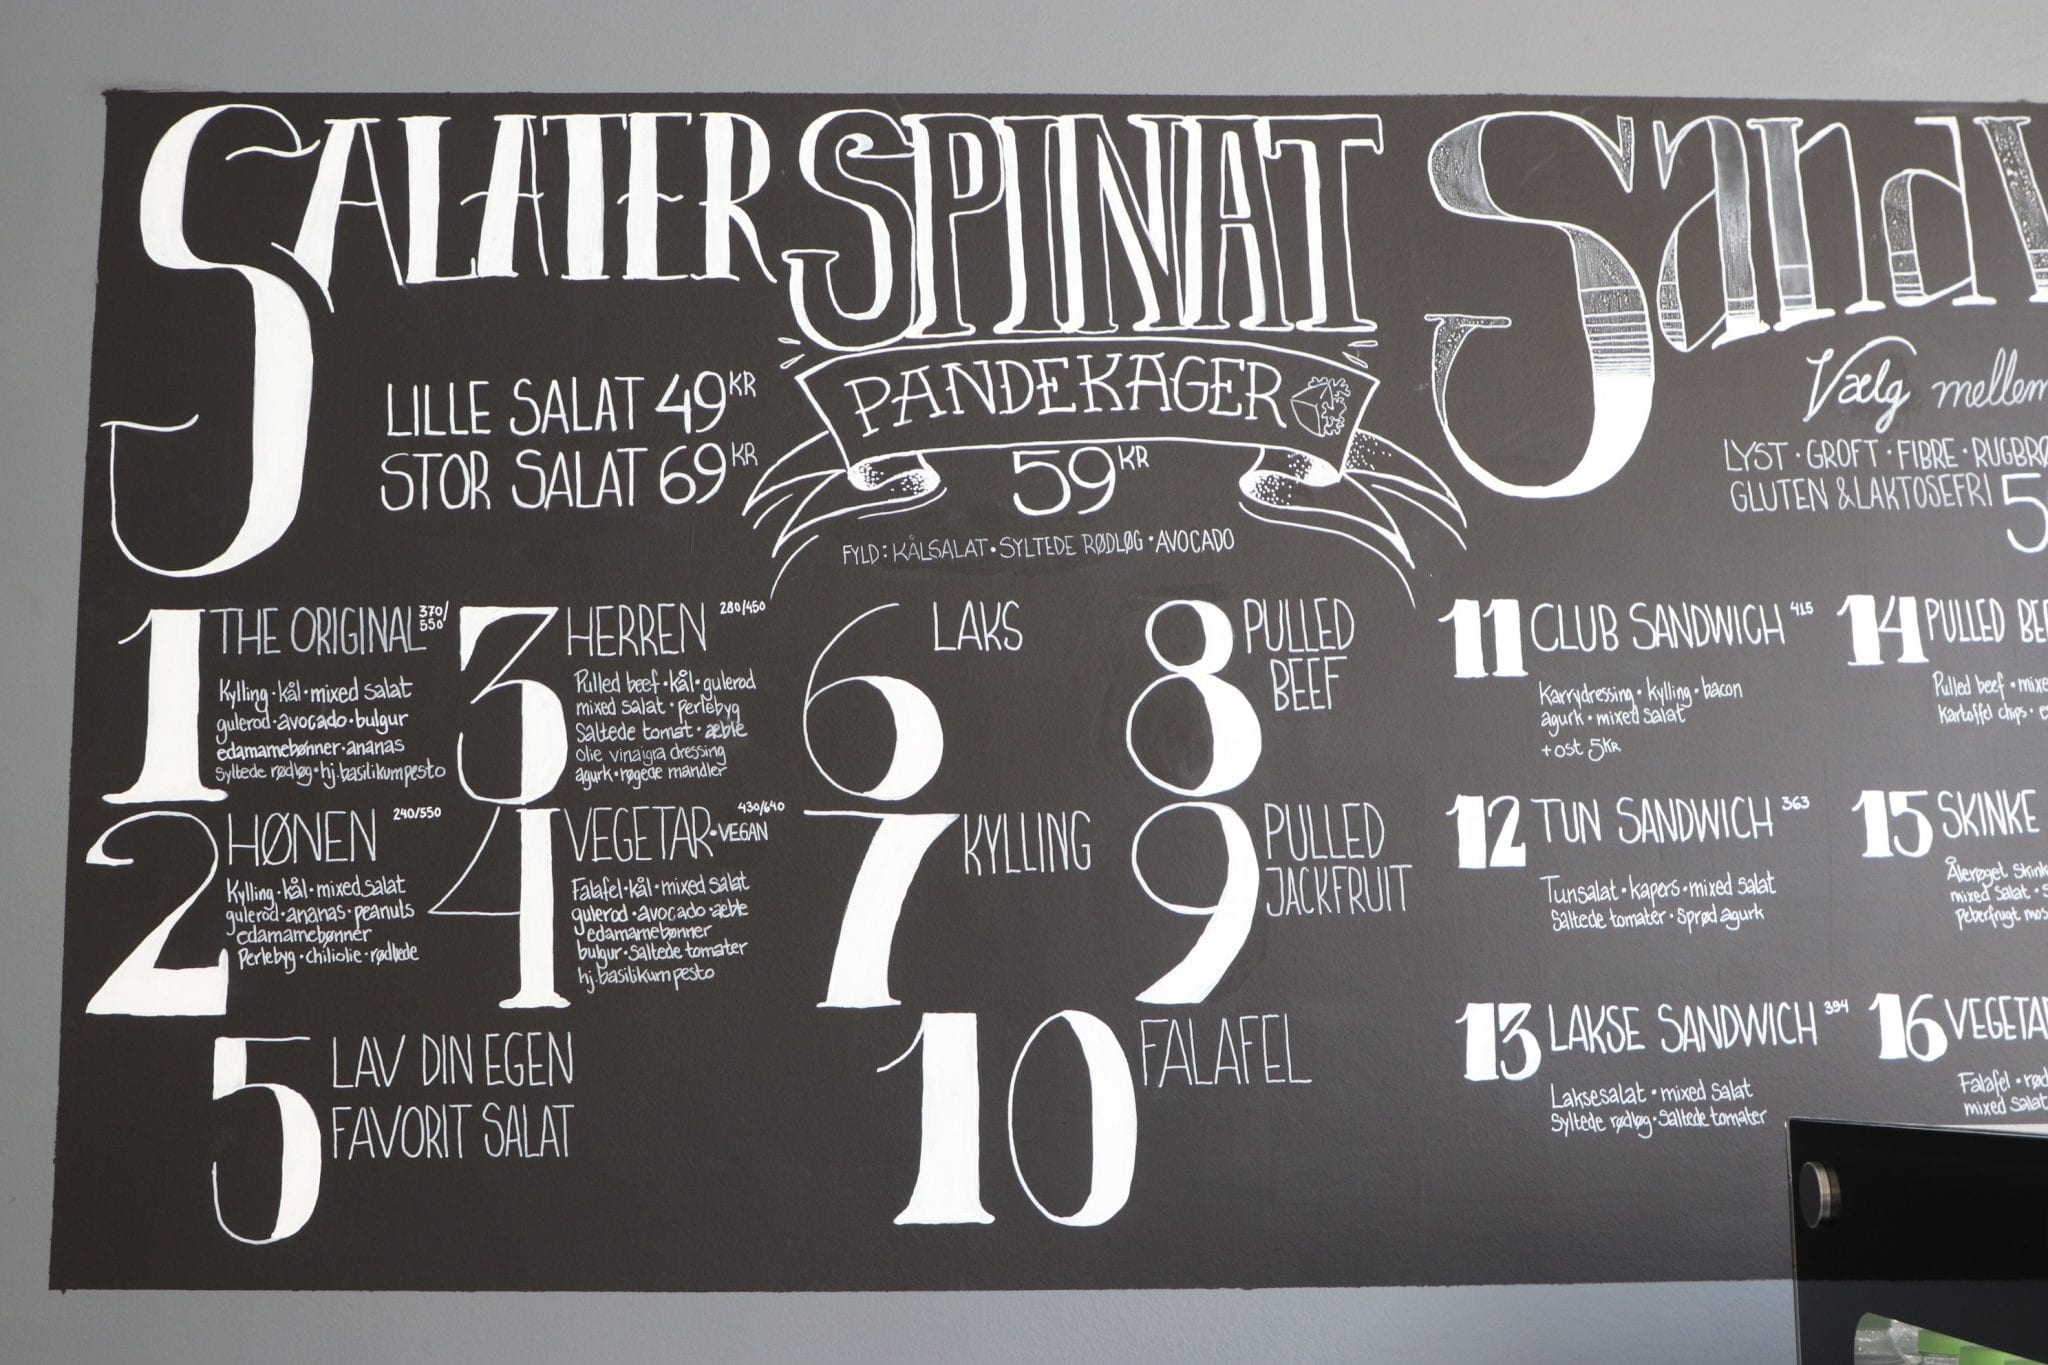 SALATER
LILLE SALAT 49 KR
STOR SALAT 69 KR
1 THE ORIGINAL 370/550
Kylling · kål · mixed salat
gulerod · avocado · bulgur
edamamebønner · ananas
syltede rødløg · hj. basilikumpesto
2 HØNEN 240/550
Kylling · kål · mixed salat
gulerod · ananas · peanuts
edamamebønner
Perlebyg · chiliolie · rødbede
3 HERREN 280/450
Pulled beef · kål · gulerod
mixed salat · perlebyg
Saltede tomat · æble
olie vinaigra dressing
agurk · røgede mandler
4 VEGETAR · VEGAN 430/640
Falafel · kål · mixed salat
gulerod · avocado · æble
edamamebønner
bulgur · Saltede tomater
hj. basilikumpesto
5 LAV DIN EGEN
FAVORIT SALAT
SPINAT
PANDEKAGER
59 KR
FYLD: KÅLSALAT · SYLTEDE RØDLØG · AVOCADO
6 LAKS
7 KYLLING
8 PULLED
BEEF
9 PULLED
JACKFRUIT
10 FALAFEL
Vælg mellem
LYST · GROFT · FIBRE ·
GLUTEN & LAKTOSEFRI 5
11 CLUB SANDWICH 415
Karrydressing · kylling · bacon
agurk · mixed salat
+ ost 5 KR
12 TUN SANDWICH 363
Tunsalat · kapers · mixed salat
Saltede tomater · Sprød agurk
13 LAKSE SANDWICH 394
Laksesalat · mixed salat
Syltede rødløg · Saltede tomater
14 PULLED
Pulled beef ·
Kartoffel chips ·
15 SKINKE
Ålerøget
mixed salat ·
Peberfrugt
16
Falafel ·
mixed salat